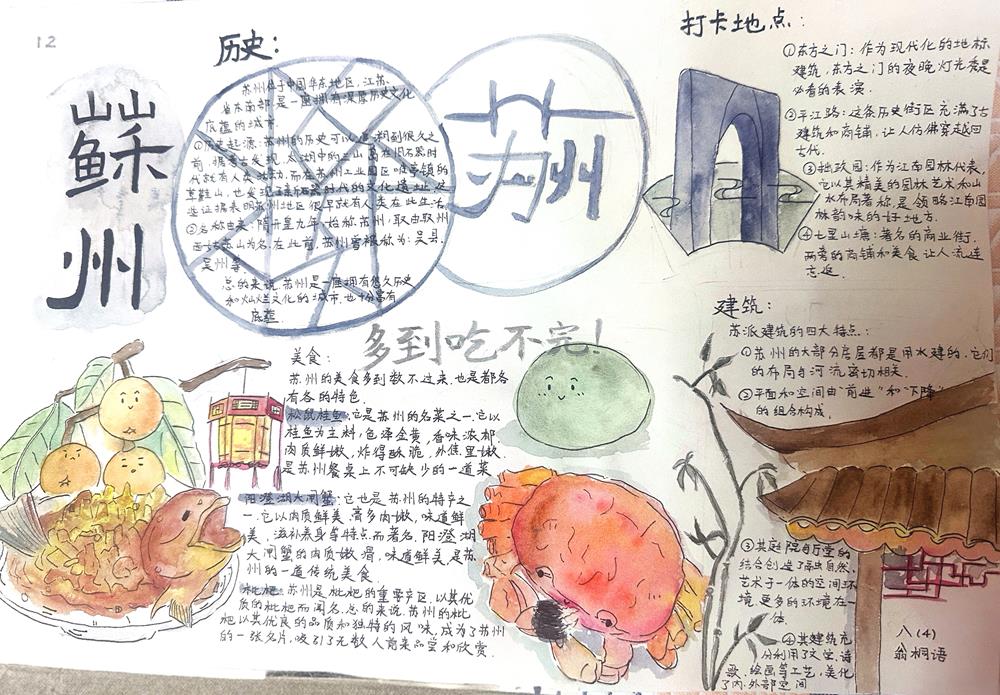 12
蘇
州
历史:
苏州位于中国华东地区,江苏
省东南部,是一座拥有深厚历史文化
底蕴的城市.
①历史起源:苏州的历史可以追溯到很久之
前,据考古发现,太湖中的三山岛在旧石器时
代就有人类活动.而在苏州工业园区唯亭镇的
草鞋山,也发现了新石器时代的文化遗址,这
些证据表明苏州地区很早就有人类在此生活
②名称由来:隋开皇九年,始称苏州,取由取州
西姑苏山为名.在此前,苏州曾被称为:吴县.
吴州等.
总的来说,苏州是一座拥有悠久历史
和灿烂文化的城市,也十分富有
底蕴.
苏州
打卡地点:
①东方之门:作为现代化的地标
建筑,东方之门的夜晚灯光秀是
必看的表演.
②平江路:这条历史街区充满了古
建筑和商铺,让人仿佛穿越回
古代.
③拙政园:作为江南园林代表,
它以其精美的园林艺术和山
水布局著称,是领略江南园
林韵味的好地方.
④七里山塘:著名的商业街.
两旁的商铺和美食让人流连
忘返.
多到吃不完!
美食:
苏州的美食多到数不过来,也是都各
有各的特色.
松鼠桂鱼:它是苏州的名菜之一.它以
桂鱼为主料,色泽金黄,香味浓郁.
肉质鲜嫩,炸得酥脆,外焦里嫩.
是苏州餐桌上不可缺少的一道菜
阳澄湖大闸蟹:它也是苏州的特产之
一.它以肉质鲜美、膏多肉嫩,味道鲜
美、滋补养身等特点而著名.阳澄湖
大闸蟹的肉质嫩滑,味道鲜美,是苏
州的一道传统美食
枇杷:苏州是枇杷的重要产区,以其优
质的枇杷而闻名.总的来说,苏州的枇
杷以其优良的品质和独特的风味,成为了苏州
的一张名片,吸引了无数人前来品尝和欣赏.
建筑:
苏派建筑的四大特点:
①苏州的大部分房屋都是用水建的,它们
的布局与河流密切相关.
②平面和空间由"前进"和"下降"
的组合构成.
③其庭院与厅堂的
结合创造了融自然、
艺术于一体的空间环
境,更多的环境在一
体.
④其建筑充
分利用了文学、诗
歌、绘画等工艺,美化
了内外部空间
八(4)
翁桐语